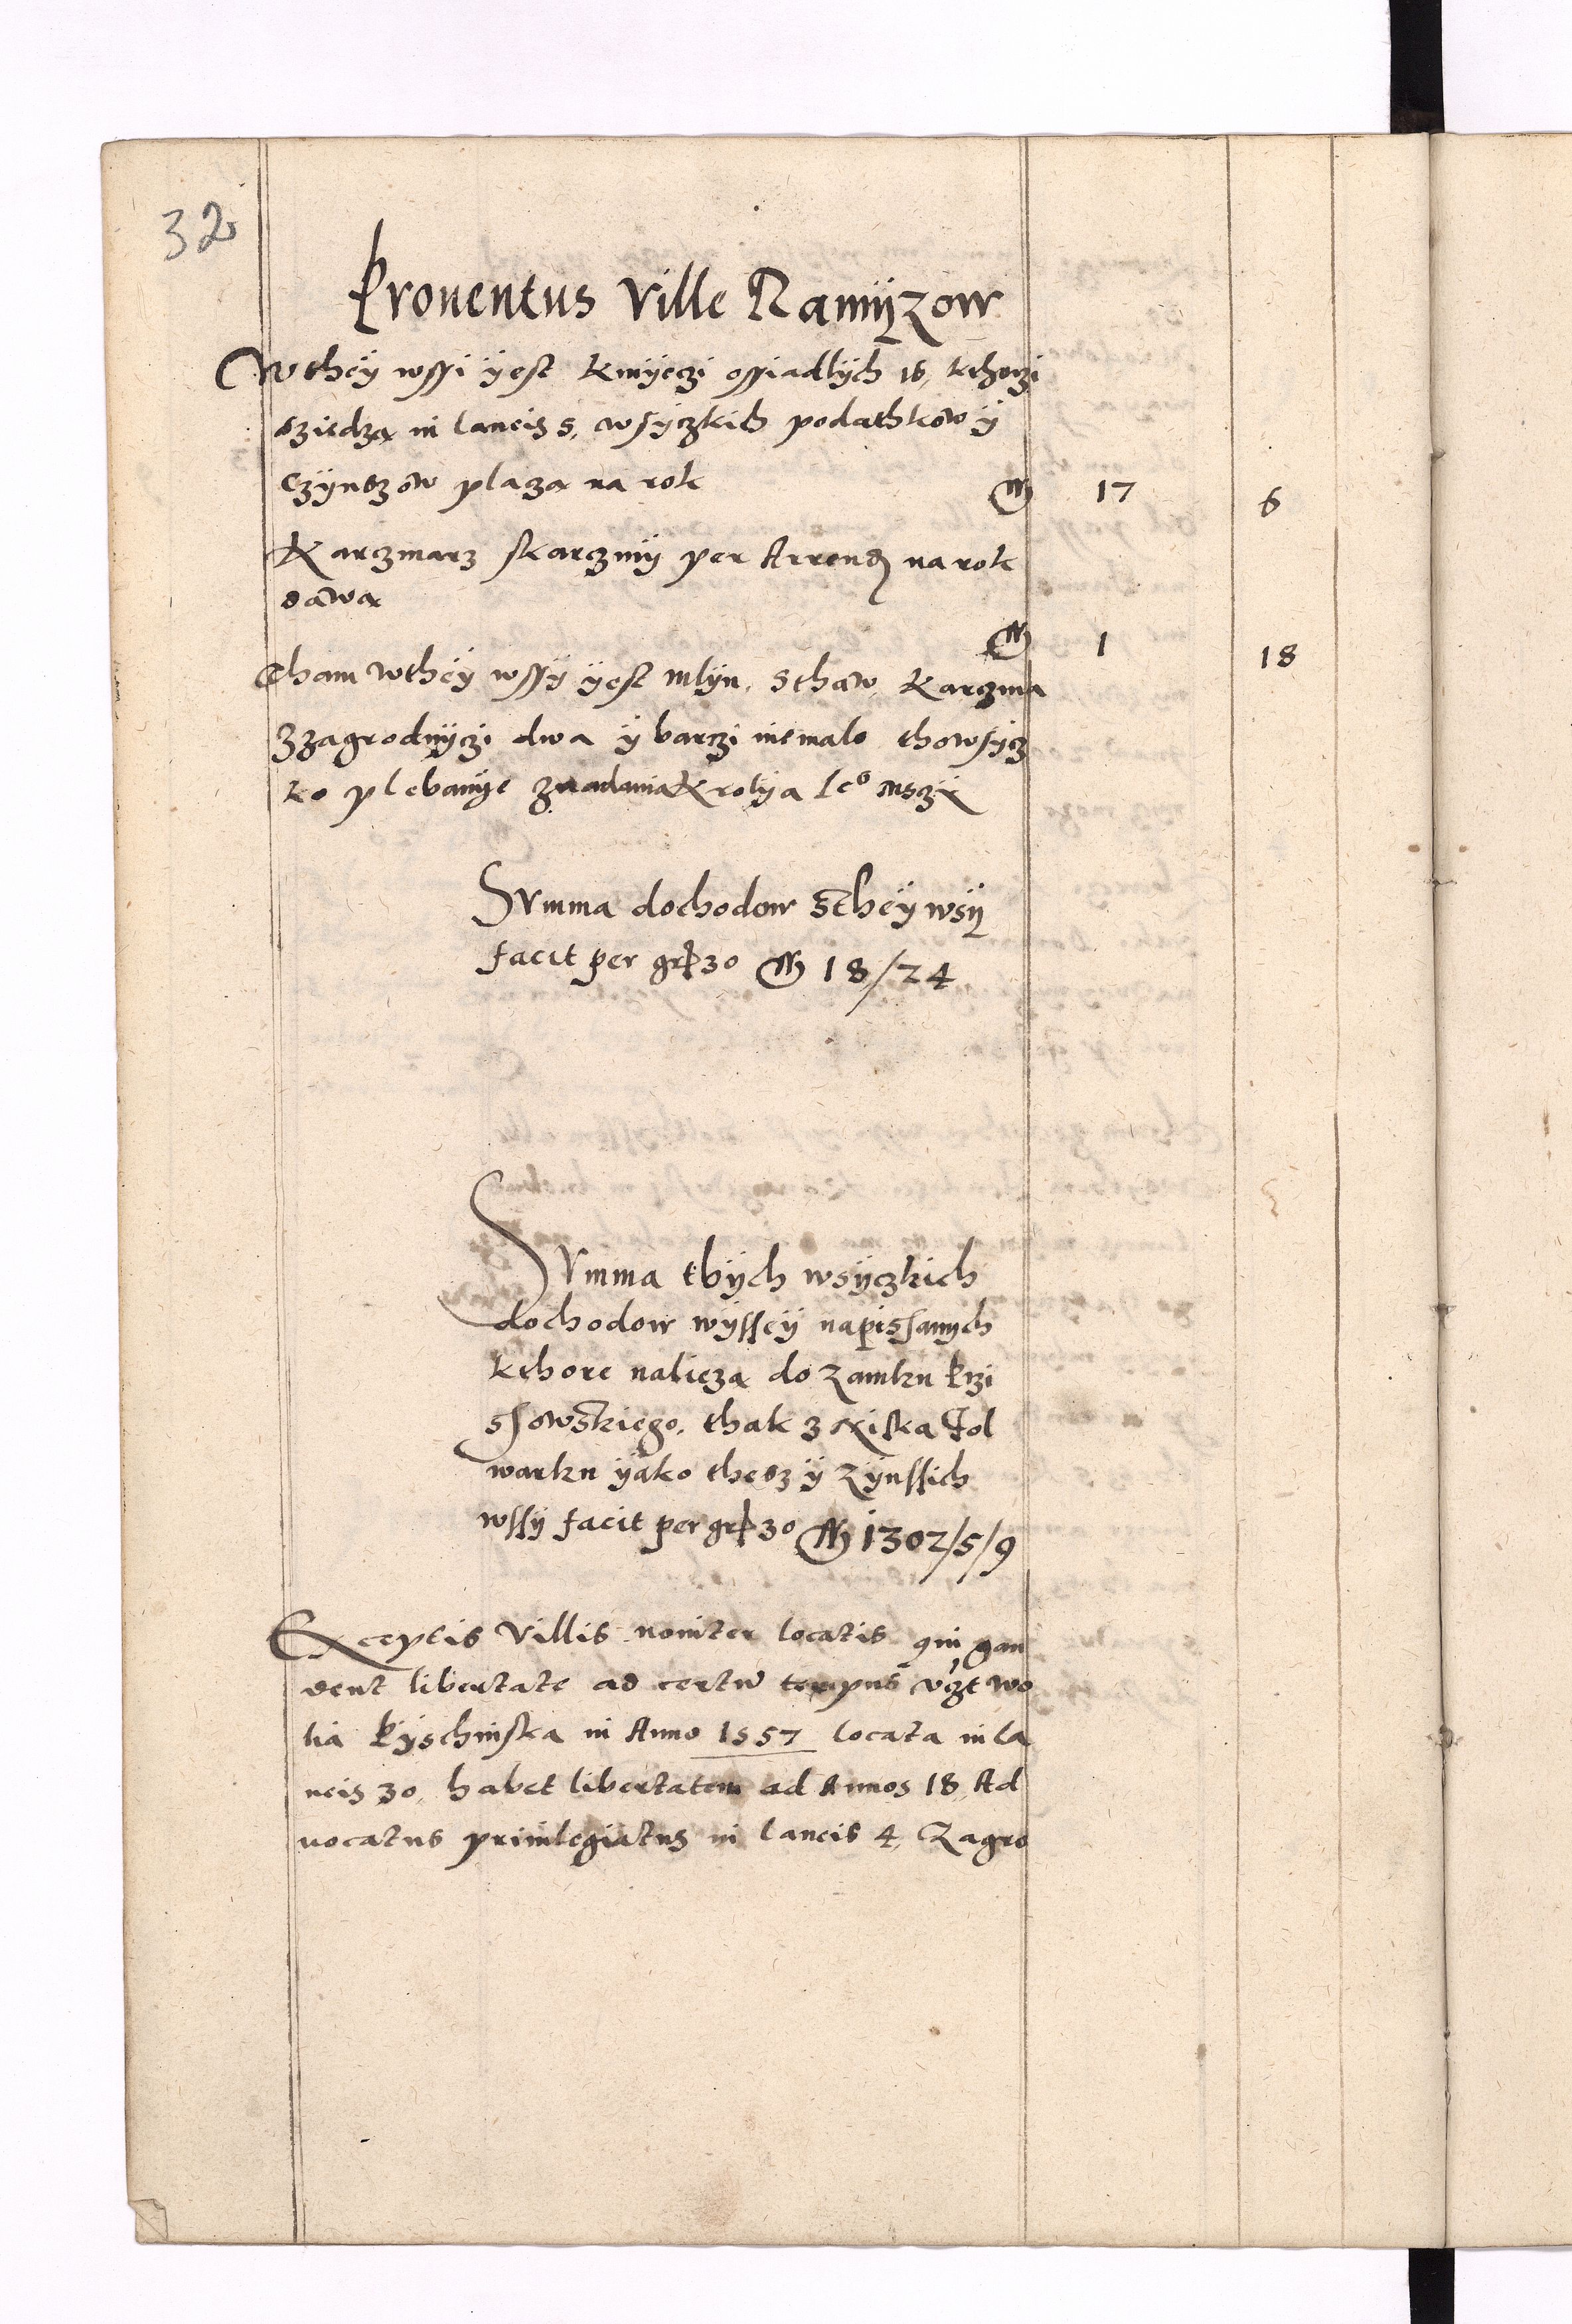 32
Proventus Ville Ramÿzow
Wtheÿ wssi ÿest kmÿeczi ossiadlÿch 16, kthorzi
sziedzą in laneis 5, wsÿczkich podathkow ÿ
czÿnszow płaczą na rok 17 6
Karczmarz skarczmÿ per Arrend na rok
dawa 1 18
Tham wtheÿ wssÿ ÿest mlÿn, sthaw, karczma
zzagrodnÿczi dwa ÿ barczi niemalo thowsÿcz
ko plebanÿe znadania Krolÿa Ieº
Summa dochodow stheÿ wsÿ
facit per 30 18/24
Summa thÿch wsÿczkich
dochodow wÿsseÿ napissanych
kthore nalieżą do zamku krzi
ssowskiego, thak z Niska fol
warku ÿako thesz ÿ zÿnssich
wssÿ facit per 30 1302/5/9
Exceptis Villis noviter locatis qui gau
dent libertate ad certu tempus vzt wo
lia Kÿschinska in Anno 1557 locata in la
neis 30, habet libertatem ad Annos 18, Ad
vocatus privilegiatus in laneis 4, Zagro